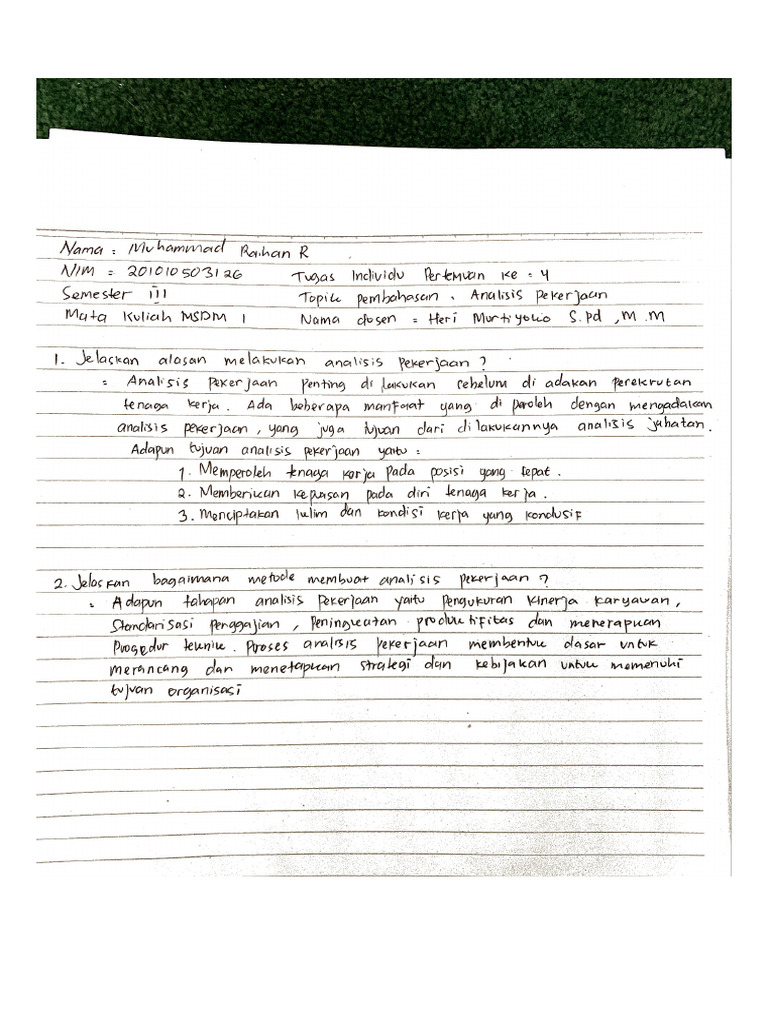 Nama : Muhammad Raihan R
NIM = 201010503126 Tugas Individu Pertemuan ke : 4
Semester III Topik pembahasan : Analisis pekerjaan
Mata Kuliah MSDM 1 Nama dosen = Heri Murtiyoko S.pd , M.M
1. Jelaskan alasan melakukan analisis pekerjaan ?
= Analisis pekerjaan penting di lakukan sebelum di adakan perekrutan
tenaga kerja. Ada beberapa manfaat yang di peroleh dengan mengadakan
analisis pekerjaan, yang juga tujuan dari dilakukannya analisis jabatan.
Adapun tujuan analisis pekerjaan yaitu :
1. Memperoleh tenaga kerja pada posisi yang tepat.
2. Memberikan kepuasan pada diri tenaga kerja.
3. Menciptakan iklim dan kondisi kerja yang kondusif
2. Jelaskan bagaimana metode membuat analisis pekerjaan ?
= Adapun tahapan analisis pekerjaan yaitu pengukuran kinerja karyawan,
Standarisasi penggajian, Peningkatan produktifitas dan menerapkan
Prosedur teknik. Proses analisis pekerjaan membentuk dasar untuk
merancang dan menetapkan strategi dan kebijakan untuk memenuhi
tujuan organisasi